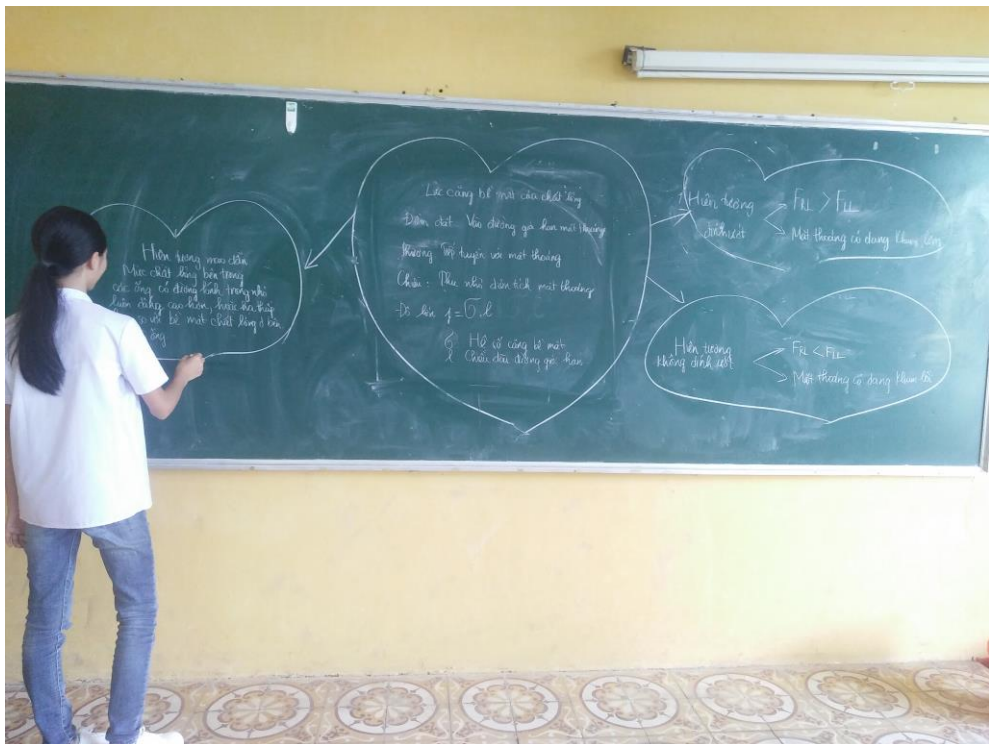 Hiện tượng mao dẫn
Mực chất lỏng bên trong
các ống có đường kính trong nhỏ
luôn dâng cao hơn, hoặc hạ thấp
so với bề mặt chất lỏng ở bên
ống
Lực căng bề mặt của chất lỏng
Điểm đặt Vào đường giới hạn mặt thoáng
Phương tuyến với mặt thoáng
Chiều: Thu nhỏ diện tích mặt thoáng
Độ lớn f = σ.l
σ Hệ số căng bề mặt
l Chiều dài đường giới hạn
Hiện tượng
dính ướt
FRL > FLL
Mặt thoáng có dạng khum lõm
Hiện tượng
không dính ướt
FRL < FLL
Mặt thoáng có dạng khum lồi